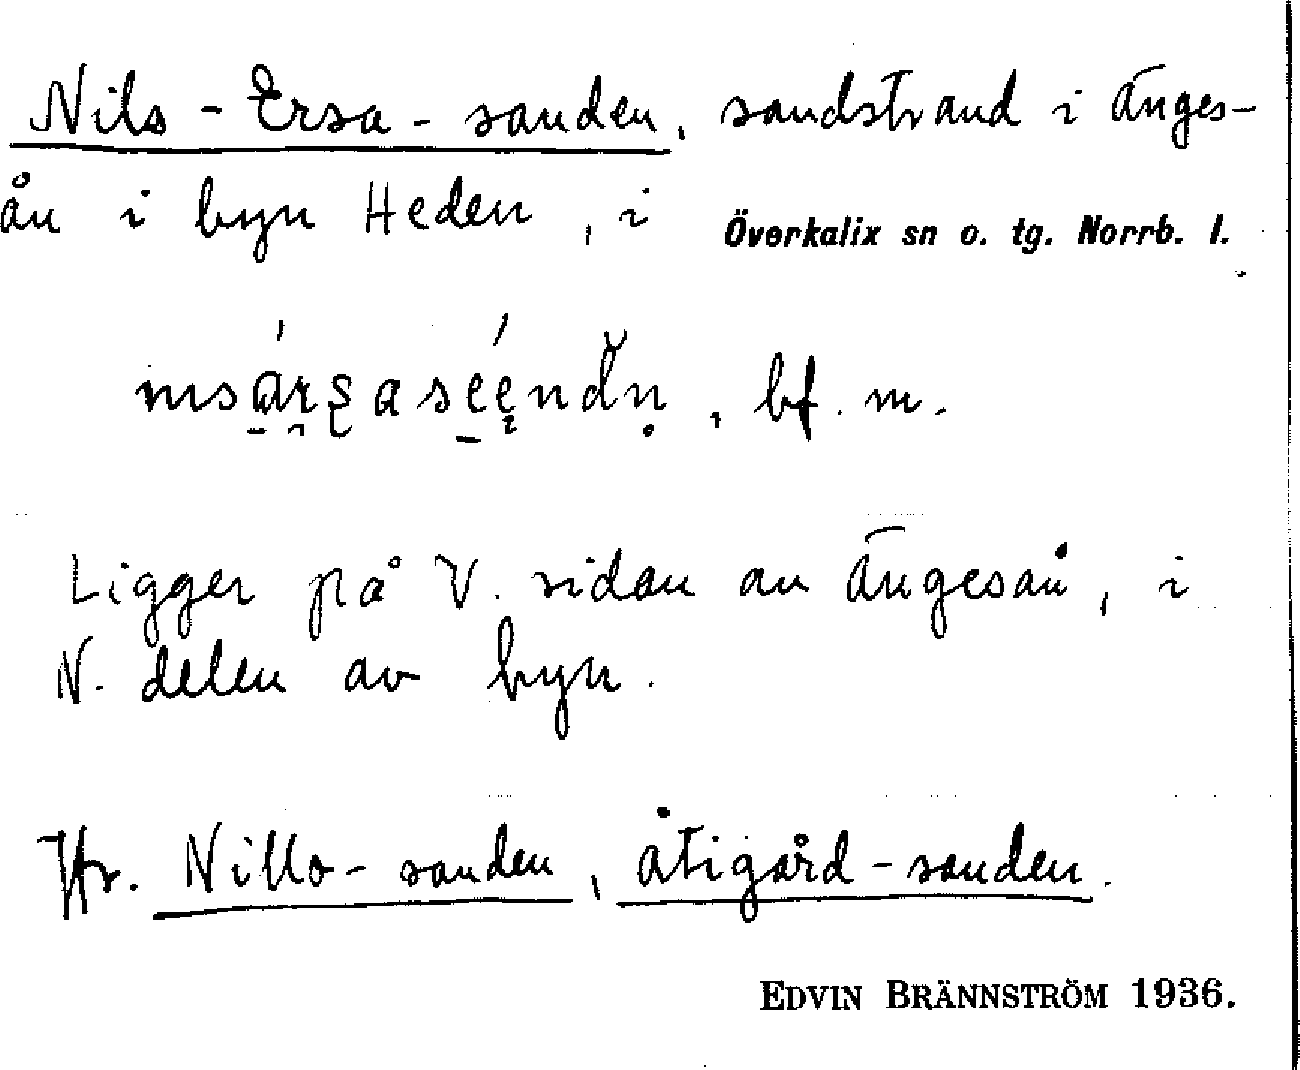 Nils-Ersa-sanden, sandstrand i Änges-
ån i byn Heden, i Överkalix sn o. tg. Norrb. l.
bf. m.
Ligger på V. sidan av Ängesån, i
N. delen av byn.
Jfr. Nillo-sanden, åtigård-sanden.
EDVIN BRÄNNSTRÖM 1936.